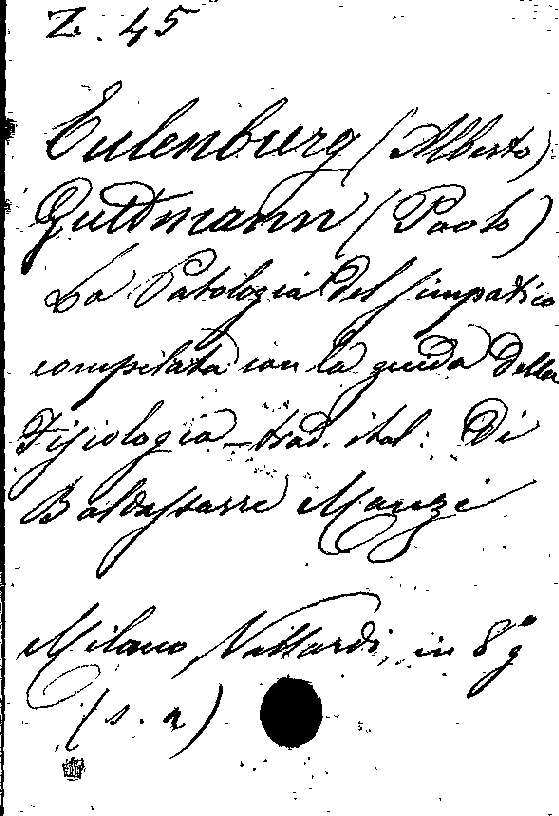 Z. 45
Eulenburg (Alberto)
Guttmann (Paolo)
La Patologia del simpatico
compilata con la guida della
Fisiologia - trad. ital. Di
Baldassarre Manzi
Milano, Vallardi, in 8º
(s. a)